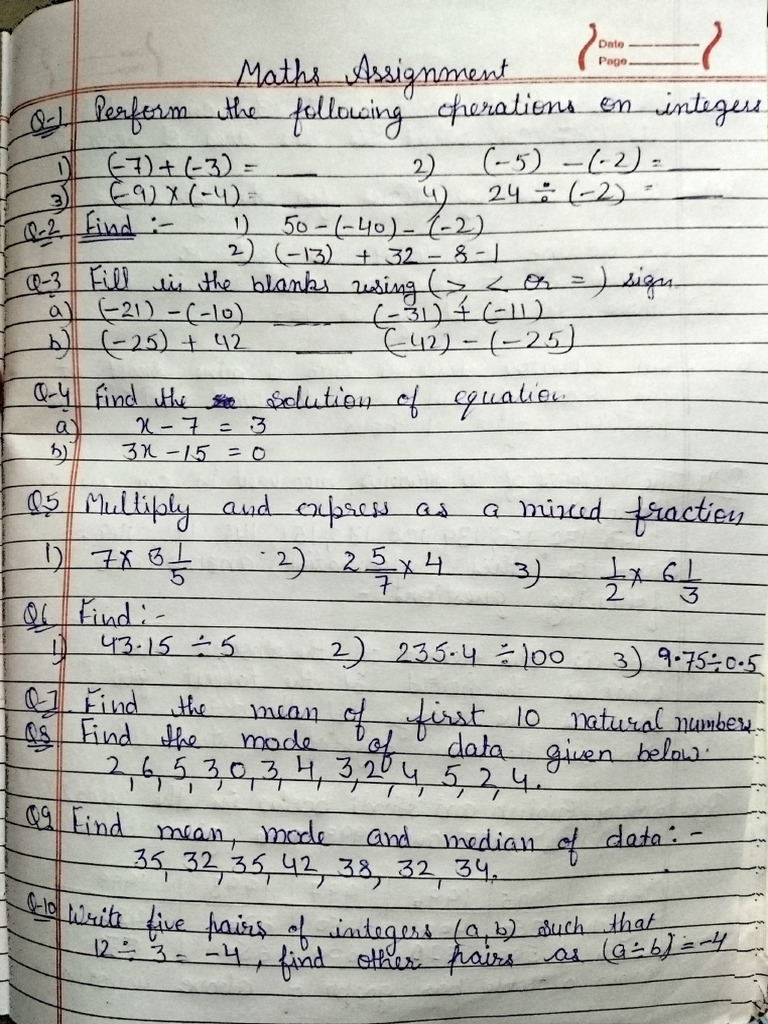 Date
Page
Maths Assignment
Q-1 Perform the following operations on integers
1) (-7) + (-3) = ___ 2) (-5) - (-2) = ___
3) (-9) × (-4) = ___ 4) 24 ÷ (-2) = ___
Q-2 Find :- 1) 50 - (-40) - (-2)
2) (-13) + 32 - 8 - 1
Q-3 Fill in the blanks using ( >, < or = ) sign
a) (-21) - (-10) ___ (-31) + (-11)
b) (-25) + 42 ___ (-42) - (-25)
Q-4 Find the solution of equation
a) x - 7 = 3
b) 3x - 15 = 0
Q5 Multiply and express as a mixed fraction
1) 7 × 3 1/5 2) 2 5/7 × 4 3) 1/2 × 6 1/3
Q6 Find :-
1) 43.15 ÷ 5 2) 235.4 ÷ 100 3) 9.75 ÷ 0.5
Q-7 Find the mean of first 10 natural numbers
Q8 Find the mode of data given below.
2, 6, 5, 3, 0, 3, 4, 3, 2, 4, 5, 2, 4.
Q9 Find mean, mode and median of data :-
35, 32, 35, 42, 38, 32, 34.
Q-10 Write five pairs of integers (a, b) such that
12 ÷ 3 = -4, find other pairs as (a ÷ b) = -4